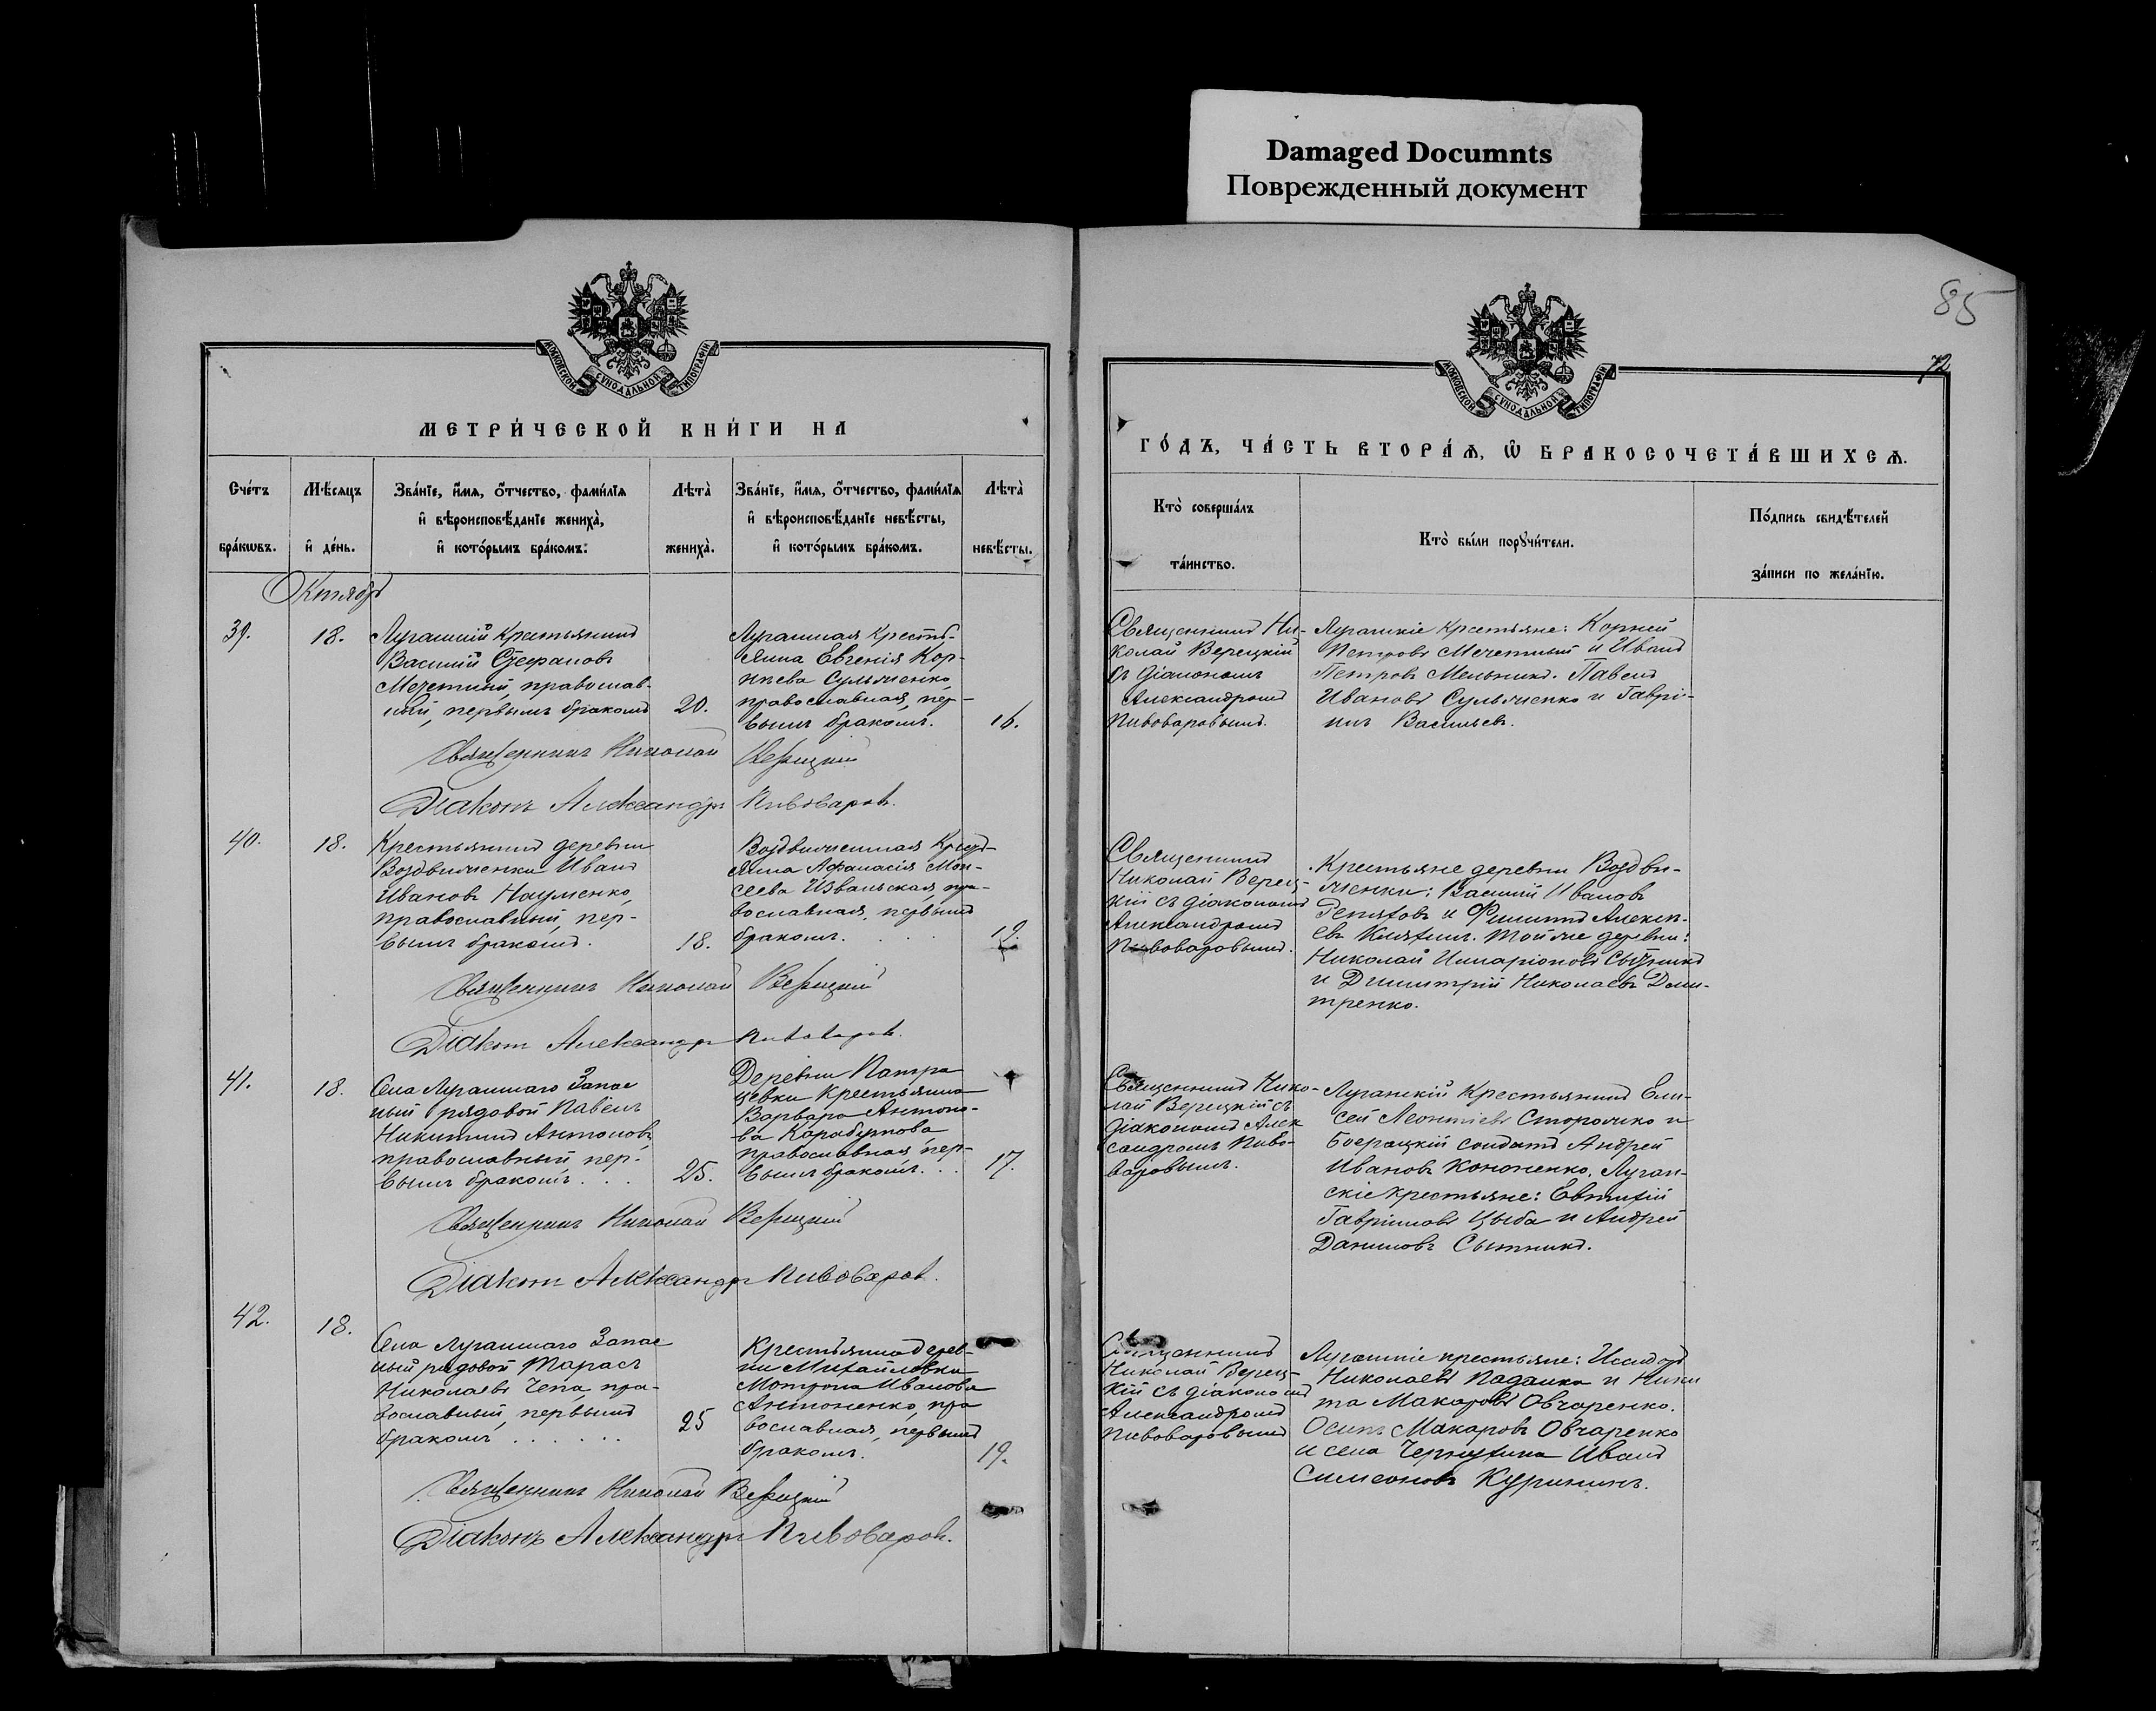 Damaged Documnts
Поврежденный документ
85
72
МОСКОВСКОЙ СѴНОДАЛЬНОЙ ТИПОГРАФІИ
МОСКОВСКОЙ СѴНОДАЛЬНОЙ ТИПОГРАФІИ
МЕТРИ́ЧЕСКОЙ КНИ́ГИ НА
ГО́ДЪ, ЧА́СТЬ ВТОРА́Ѧ, Ѽ БРАКОСОЧЕТА́ВШИХСѦ.
Сче́тъ
бра́кѡвъ.
Мѣ́сѧцъ
и҆ де́нь.
Зва́нїе, и҆́мѧ, ѻ҆́тчество, фами́лїѧ
и҆ вѣроисповѣ́данїе жениха̀,
и҆ кото́рымъ бра́комъ:
Лѣ́та̀
жениха̀.
Зва́нїе, и҆́мѧ, ѻ҆́тчество, фами́лїѧ
и҆ вѣроисповѣ́данїе невѣ́сты,
и҆ кото́рымъ бра́комъ.
Лѣ́та̀
невѣ́сты.
Кто̀ соверша́лъ
та́инство.
Кто̀ бы́ли порꙋчи́тели.
По́дпись свидѣ́телей
за́писи по жела́нїю.
Октябрь
39.
18.
Луганскій крестьянинъ
Василій Стефановъ
Мечетный, православ-
ный, первымъ бракомъ
20.
Луганская кресть-
янка Евгенія Кор-
ніева Сульженко
православная, пер-
вымъ бракомъ.
16.
Священникъ Ни-
колай Верецкій
съ діакономъ
Александромъ
Пивоваровымъ.
Луганскіе крестьяне: Корней
Петровъ Мечетный и Иванъ
Петровъ Мельникъ. Павелъ
Ивановъ Сульженко и Гаврі-
илъ Васильевъ.
Священникъ Николай Верецкій
Діаконъ Александръ Пивоваровъ.
40.
18.
Крестьянинъ деревни
Воздвиженки Иванъ
Ивановъ Науменко,
православный, пер-
вымъ бракомъ.
18.
Воздвиженская крест-
янка Афанасія Мои-
сеева Извальская, пра-
вославная, первымъ
бракомъ.
19.
Священникъ
Николай Верец-
кій съ діакономъ
Александромъ
Пивоваровымъ.
Крестьяне деревни Воздви-
женки: Василій Ивановъ
и Филиппъ Алексѣ-
евъ Той же деревни:
Николай Иларіоновъ Сытникъ
и Димитрій Николаевъ Дми-
тренко.
Священникъ Николай Верецкій
Діаконъ Александръ Пивоваровъ.
41.
18.
Села Луганскаго Запас
ный рядовой Павелъ
Никитинъ Антоновъ,
православный, пер-
вымъ бракомъ . . .
25.
Деревни Патра
цевки крестьянка
Варвара Антоно-
ва Карабутова
православная, пер-
вымъ бракомъ. . .
17.
Священникъ Нико-
лай Верецкій съ
діакономъ Алек
сандромъ Пиво-
варовымъ.
Луганскій крестьянинъ Ели-
сей Леонтіевъ Сторожко и
Боерацкій солдатъ Андрей
Ивановъ Кононенко. Луган-
скіе крестьяне: Евтихій
Гавріиловъ Цыба и Андрей
Даниловъ Сытникъ.
Священникъ Николай Верецкій
Діаконъ Александръ Пивоваровъ.
42.
18.
Села Луганскаго Запас
ный рядовой Тарасъ
Николаевъ Чепа, пра-
вославный, первымъ
бракомъ . . . . . .
25
Крестьянка дерев-
ни Михайловки
Мотрона Иванова
Антоненко, пра
вославная, первымъ
бракомъ.
19.
Священникъ
Николай Верец-
кій съ діакономъ
Александромъ
Пивоваровымъ
Луганскіе крестьяне: Исидоръ
Николаевъ Падалка и Ники
та Макаровъ Овчаренко.
Осипъ Макаровъ Овчаренко
и села Чернухина Иванъ
Симеоновъ Курининъ.
Священникъ Николай Верецкій
Діаконъ Александръ Пивоваровъ.